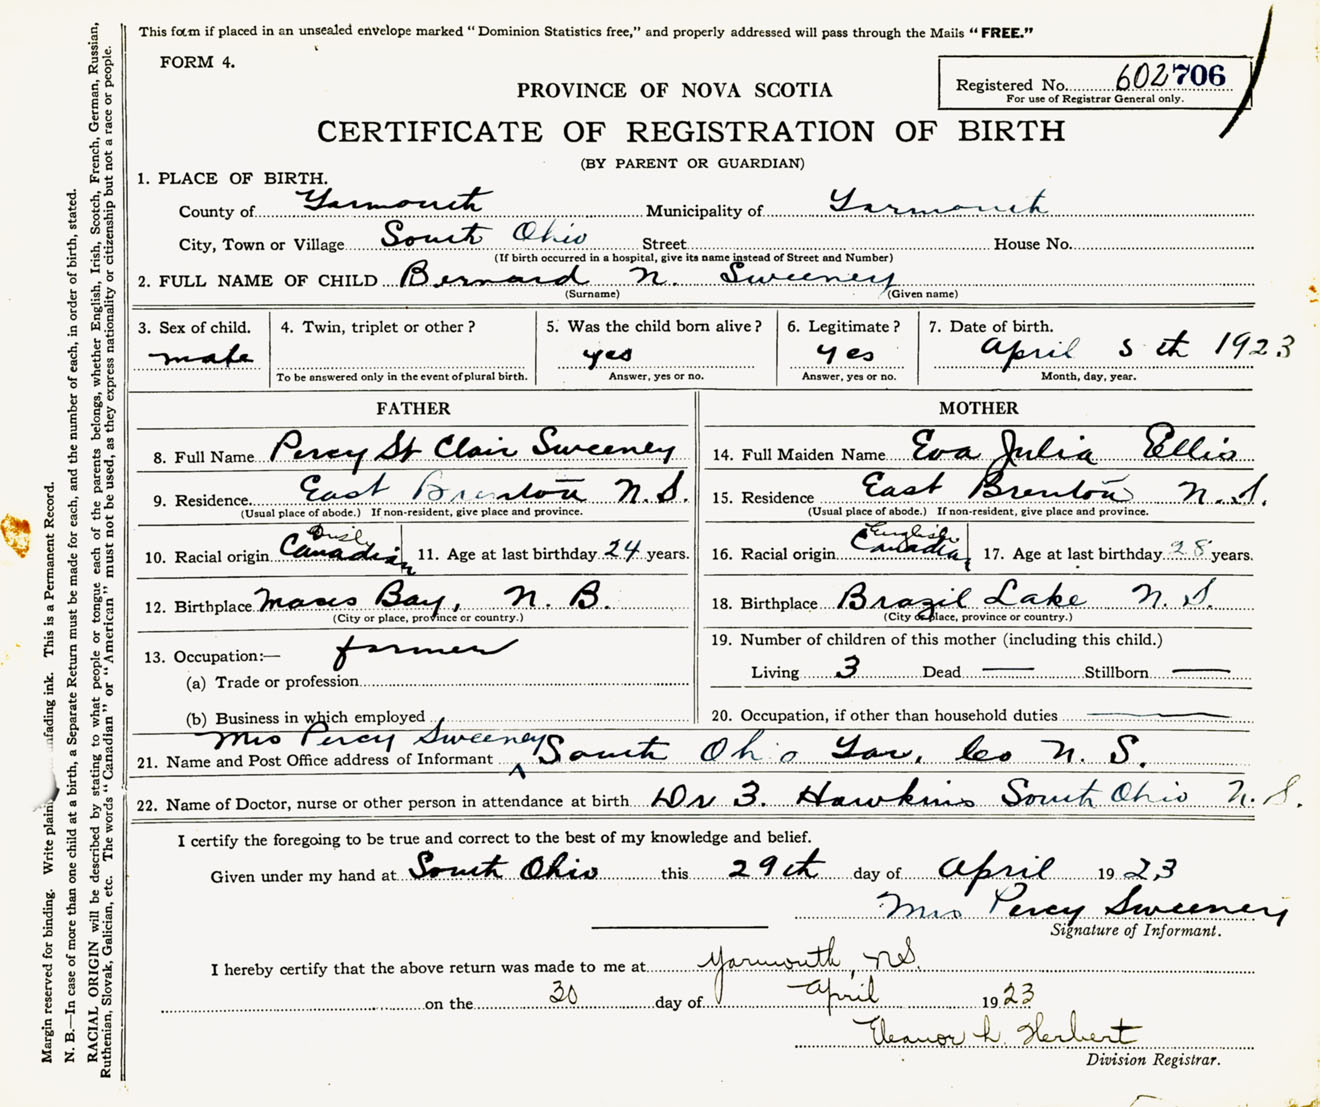 This form if placed in an unsealed envelope marked "Dominion Statistics free," and properly addressed will pass through the Mails "FREE."
FORM 4.
Registered No. 602706
For use of Registrar General only.
PROVINCE OF NOVA SCOTIA
CERTIFICATE OF REGISTRATION OF BIRTH
(BY PARENT OR GUARDIAN)
1. PLACE OF BIRTH.
County of Yarmouth Municipality of Yarmouth
City, Town or Village South Ohio Street House No.
(If birth occurred in a hospital, give its name instead of Street and Number)
2. FULL NAME OF CHILD Bernard N. Sweeney
(Surname) (Given name)
3. Sex of child. 4. Twin, triplet or other? 5. Was the child born alive? 6. Legitimate? 7. Date of birth.
male yes yes April 5th 1923
To be answered only in the event of plural birth. Answer, yes or no. Answer, yes or no. Month, day, year.
FATHER MOTHER
8. Full Name Percy St Clair Sweeney 14. Full Maiden Name Eva Julia Ellis
9. Residence East Brenton N.S. 15. Residence East Brenton N.S.
(Usual place of abode.) If non-resident, give place and province. (Usual place of abode.) If non-resident, give place and province.
English
10. Racial origin Canadian 11. Age at last birthday 24 years. 16. Racial origin Canadian 17. Age at last birthday 28 years.
12. Birthplace Bay, N. B. 18. Birthplace Brazil Lake N. S.
(City or place, province or country.) (City or place, province or country.)
13. Occupation:— farmer 19. Number of children of this mother (including this child.)
(a) Trade or profession Living 3 Dead — Stillborn —
(b) Business in which employed 20. Occupation, if other than household duties —
Mrs Percy Sweeney
21. Name and Post Office address of Informant South Ohio Yar. Co N. S.
22. Name of Doctor, nurse or other person in attendance at birth Dr Hawkins South Ohio N. S.
I certify the foregoing to be true and correct to the best of my knowledge and belief.
Given under my hand at South Ohio this 29th day of April 1923
Mrs Percy Sweeney
Signature of Informant.
I hereby certify that the above return was made to me at Yarmouth, N.S.
on the 30 day of April 1923
Eleanor L. Herbert
Division Registrar.
Margin reserved for binding. Write plain fading ink. This is a Permanent Record.
N. B.—In case of more than one child at a birth, a Separate Return must be made for each, and the number of each, in order of birth, stated.
RACIAL ORIGIN will be described by stating to what people or tongue each of the parents belongs, whether English, Irish, Scotch, French, German, Russian,
Ruthenian, Slovak, Galician, etc. The words "Canadian" or "American" must not be used, as they express nationality or citizenship but not a race or people.